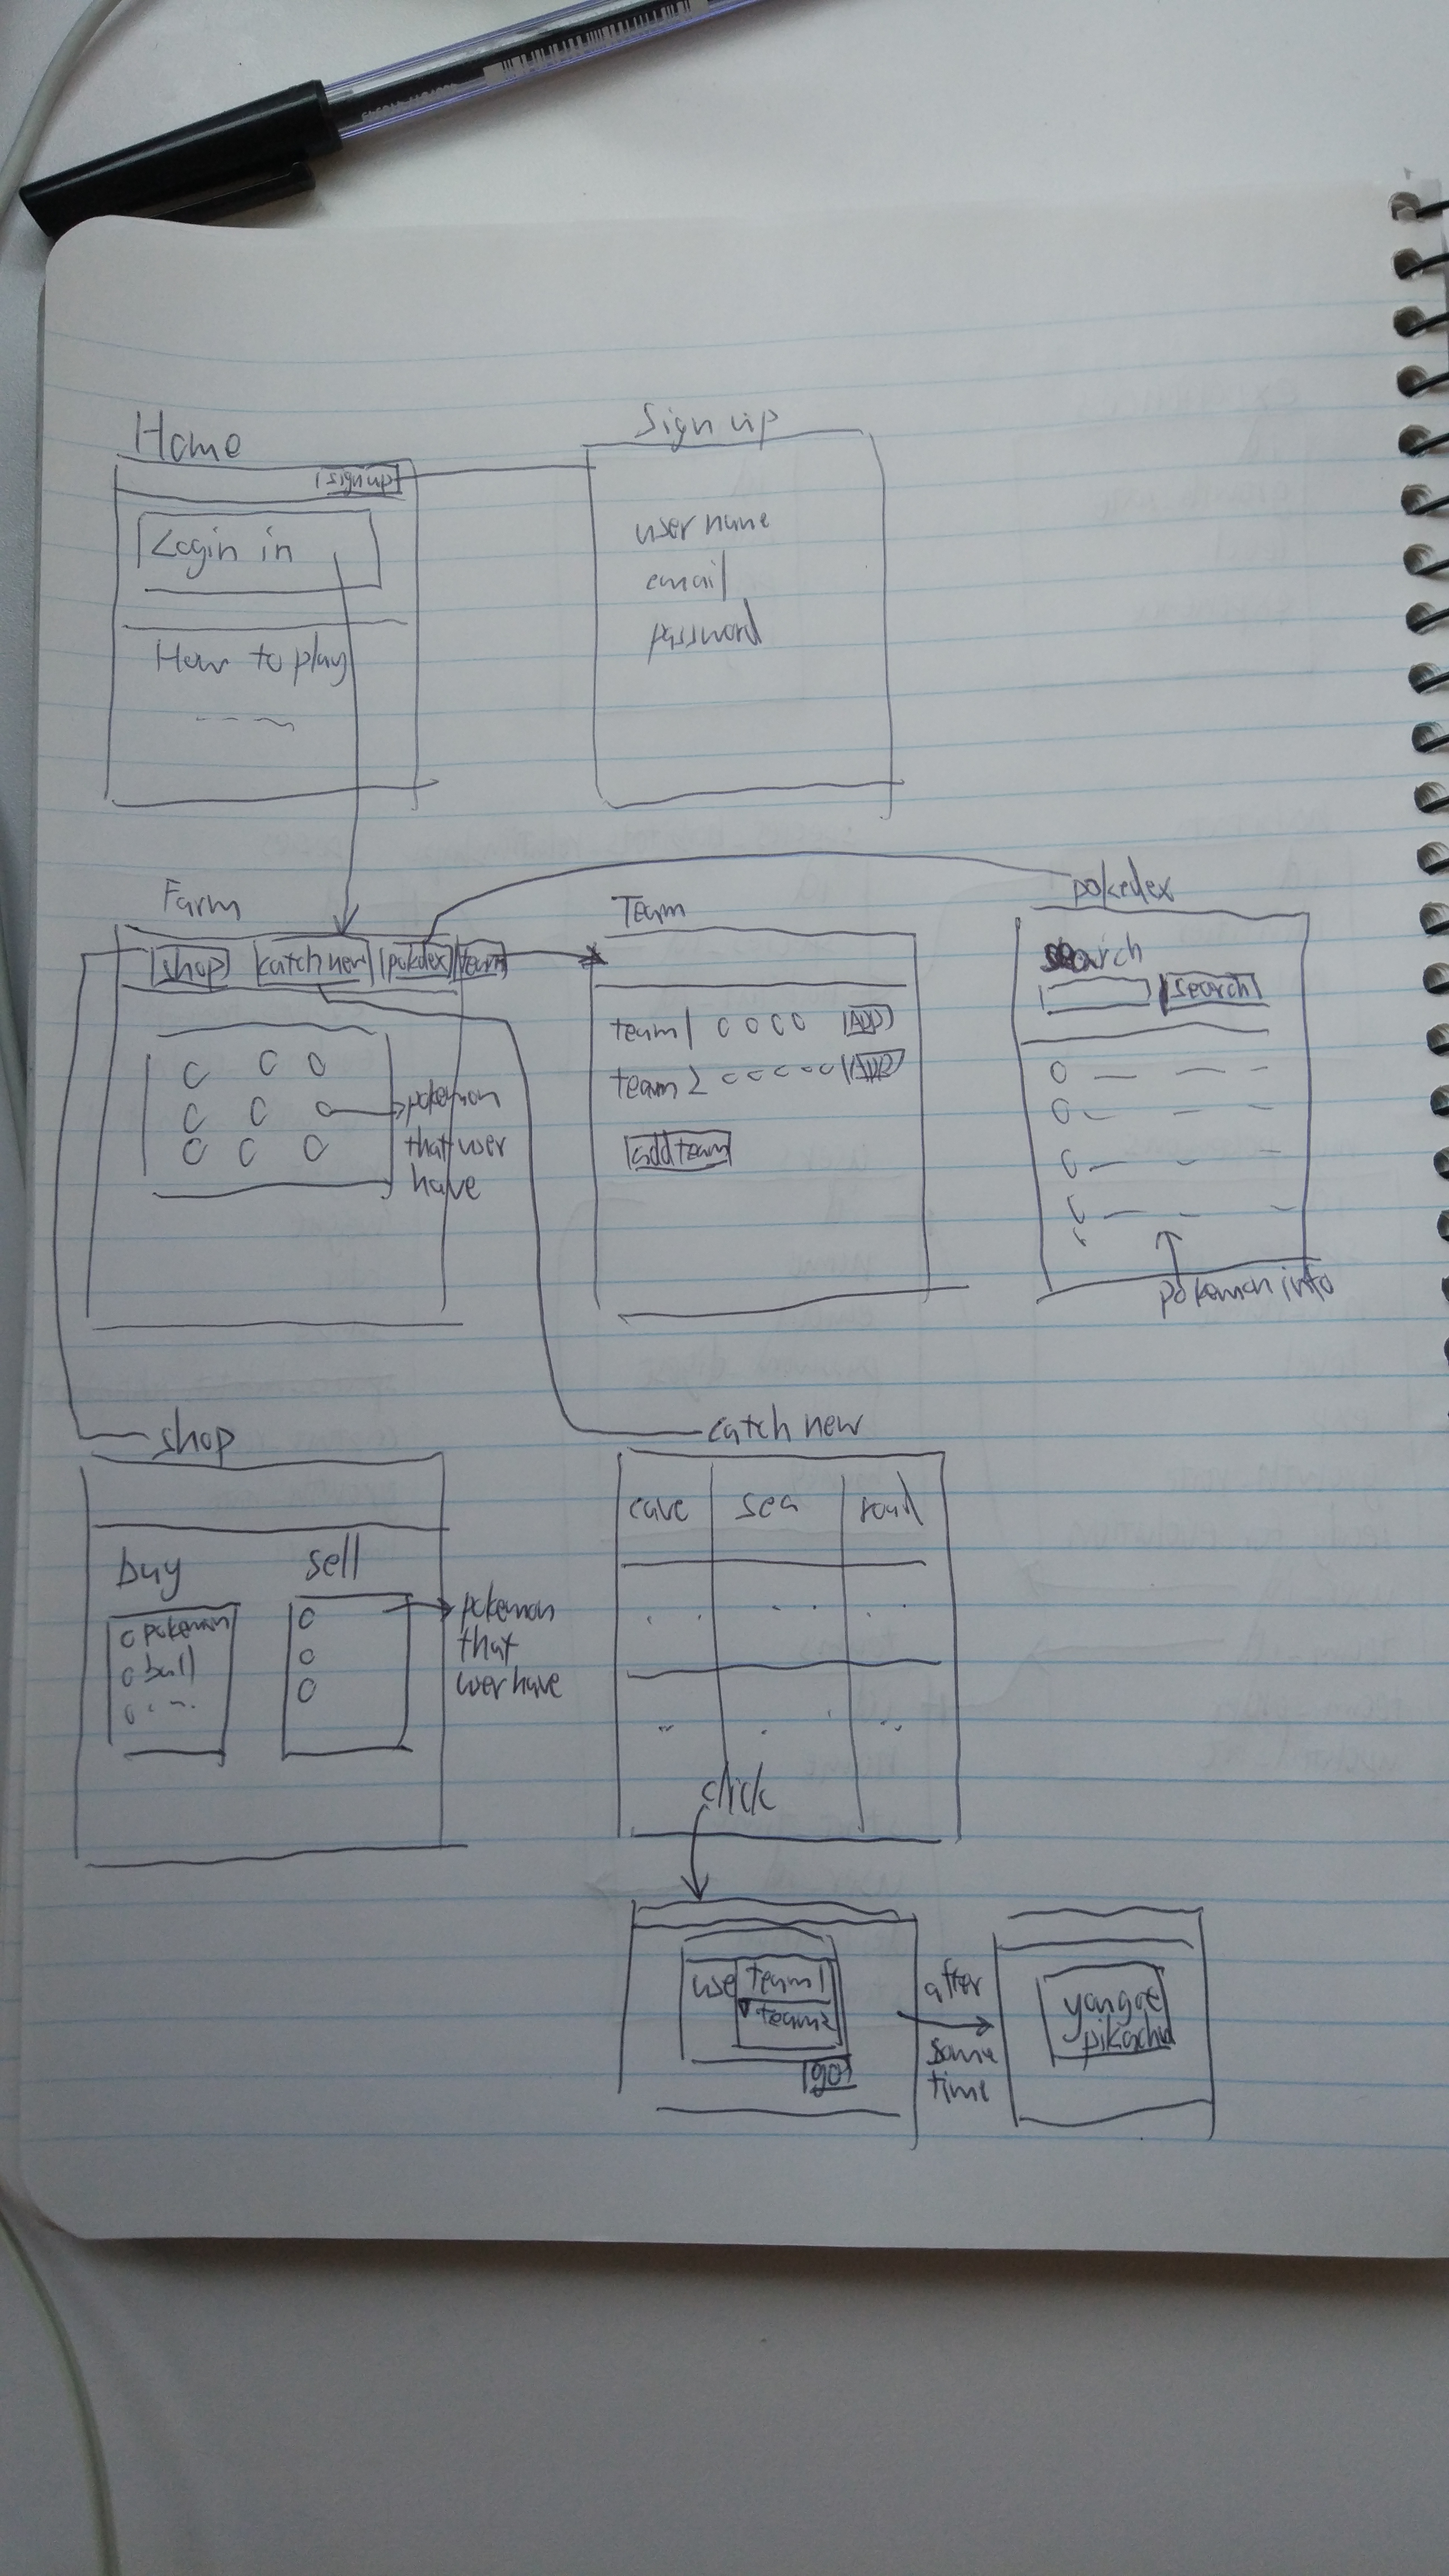 Home
sign up
Login in
How to play
Sign up
user name
email
password
Farm
shop
catch new
pokdex
team
pokemon
that user
have
Team
team1
ADD
team2
ADD
add team
pokedex
search
search
pokemon info
shop
buy
sell
pokemon
ball
pokemon
that
user have
catch new
cave
sea
road
click
use
team1
team2
go
after
some
time
you get
pikachu